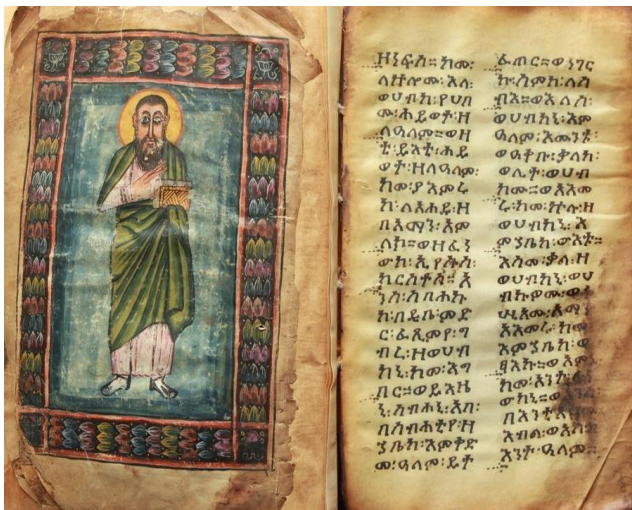 ዘነፍስ። ከመ፡
ለኵሎሙ፡ እለ፡
ወሀብከ፡ የሀበ
ሙ፡ ሕይወተ፡ ዘ
ለዓለም። ወዛ
ቲ፡ ይእቲ፡ ሕይ
ወት፡ ዘለዓለም፡
ከመ፡ ያእምሩ
ከ፡ ለአሐዱ፡ ዘ
በአማን፡ አም
ላክ። ወዘፈነ
ውከ፡ ኢየሱስ፡
ክርስቶስ። አ
ንሰ፡ ሰባሕኩ
ከ፡ በዲበ፡ ምድ
ር፡ ፈጺምየ፡ ግ
ብረ፡ ዘወሀብ
ከኒ፡ ከመ፡ እግ
በር። ወይእዜ
ኒ፡ ሰብሐኒ፡ አባ፡
በስብሐቲየ፡ ዘ
ኀቤከ፡ እምቅድ
መ፡ ዓለም፡ ይት
ፈጠር። ወነገር
ኩ፡ ስምከ፡ ለሰ
ብእ። ወእለሰ፡
ወሀብከኒ፡ እም
ዓለም፡ እሙንቱ፡
ወዓቀቡ፡ ቃለከ፡
ወሊተ፡ ወሀብ
ከሙ። ወአእመ
ሩ፡ ከመ፡ ኵሉ፡ ዘ
ወሀብከኒ፡ እ
ምኀቤከ፡ ውእቱ።
እስመ፡ ቃለ፡ ዘ
ወሀብከኒ፡ ወሀ
ብኩዎሙ፡
አእመሩ፡ ከመ
እምኀቤከ፡ ወ
ፃእኩ።
ከመ፡ አንተ፡ ፈነ
ውከኒ።
እንተ፡ ዓለም።